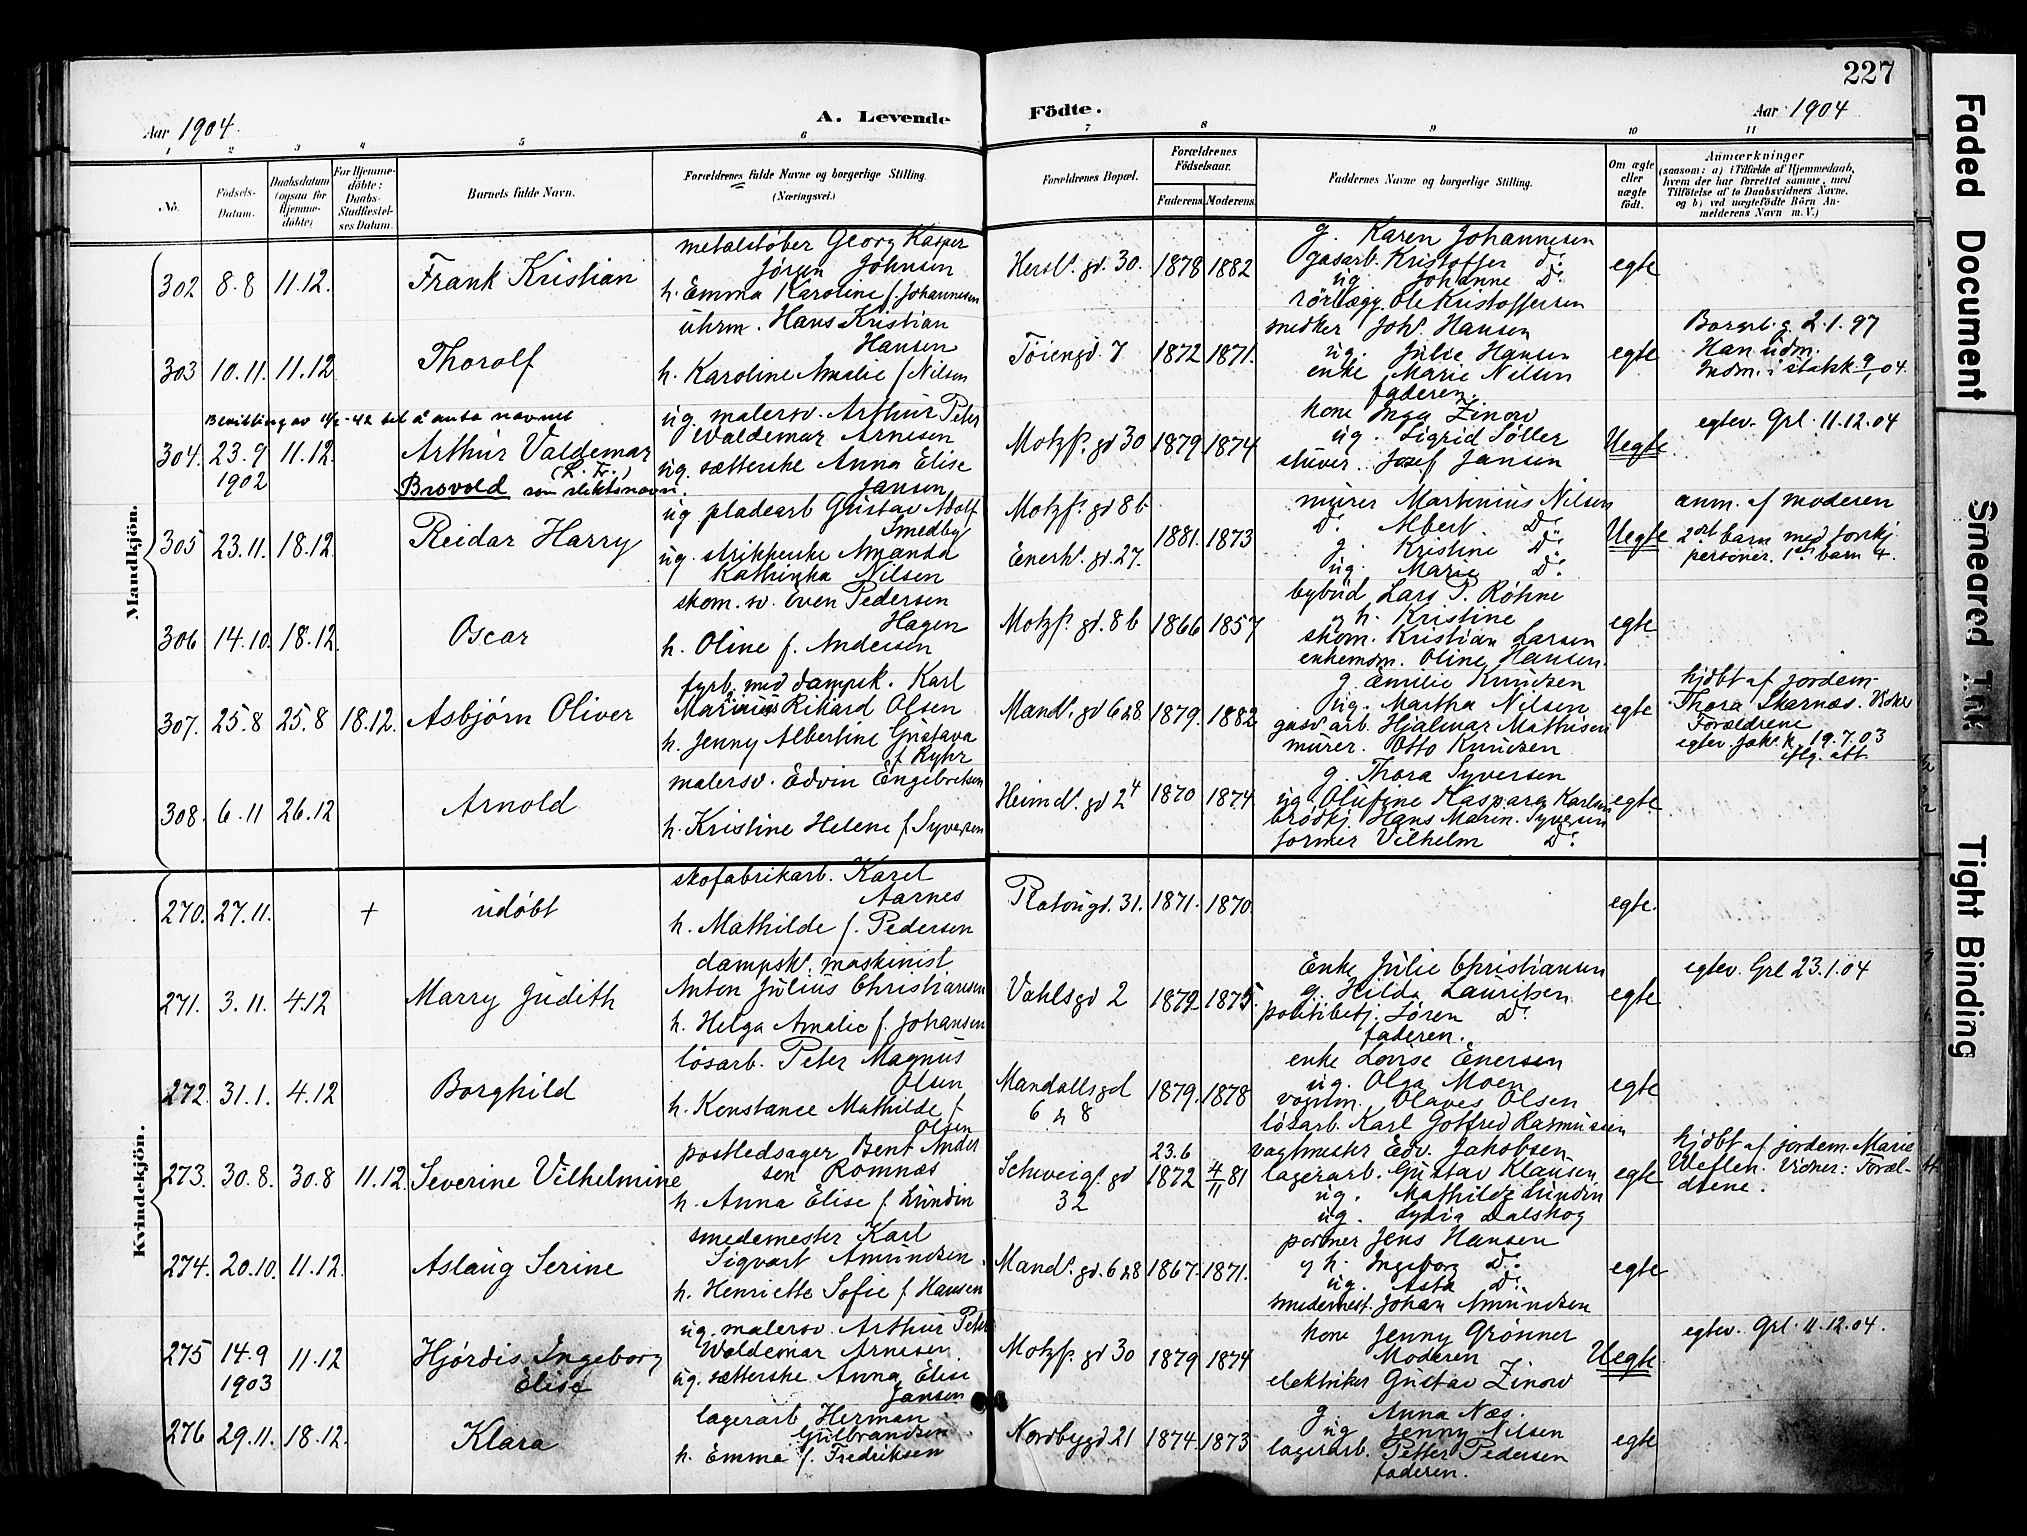 227
Aar 1904.
A. Levende
Födte.
Aar 1904
1 2 3 4 5 6 7 8 9 10 11
No.
Födsels-Datum.
Daabsdatum (ogsaa for Hjemmedöbte)
For Hjemmedöbte: Daabs-Stadfæstelses Datum.
Barnets fulde Navn.
Forældrenes fulde Navne og borgerlige Stilling.
(Næringsvei.)
Forældrenes Bopæl.
Forældrenes Födselsaar.
Faderens Moderens
Faddernes Navne og borgerlige Stilling.
Om ægte eller uægte födt.
Anmærkninger
(saasom: a) i Tilfælde af Hjemmedaab, hvem der har forrettet samme, med Tilföielse af to Daabsvidners Navne, og b) ved uægtefödte Börn Anmelderens Navn m. V.)
Mandkjön.
302 8.8 11.12. Frank Kristian
metalstøber Georg Kasper
Jörgen Johnsen
h. Emma Karoline f. Johannesen
Hersl. gd. 30. 1878 1882
g. Karen Johannesen
gasarb. Kristoffer Do
ug. Johanne Do
rörlægg. Ole Kristoffersen
egte
303 10.11. 11.12 Thorolf
uhrm. Hans Kristian
Hansen
h. Karoline Amalie f Nilsen
Töiengd. 7 1872 1871.
snedker Joh. Hansen
ug. Julie Hansen
enke Marie Nilsen
faderen
egte
Borgerl. g. 2.1.97
Han udm.
Indm. i statsk. 9/1 04.
Bevilling av 14/2-42 til å anta navnet
304. 23.9 1902 11.12. Arthur Valdemar
Brovold som slektsnavn.
ug. malersv. Arthur Peter
Waldemar Arnesen
ug. sætterske Anna Elise
Jansen
Motzf. gd 30 1879. 1874
kone Inga Zinow
ug. Sigrid Söller
stuver. Josef Jansen
Uegte
egtev. Grl. 11.12.04
305 23.11. 18.12. Reidar Harry
ug. pladearb Gustav Adolf
Smedby
ug. strikkerske Amanda
Kathinka Nilsen
Motzf. gd 8b
Enerh. gd. 27. 1881. 1873
murer Martinius Nilsen
Do Albert Do
g. Kristine Do
ug. Marie Do
Uegte
anm. af moderen
2det barn med forskj.
personer. 1ste barn 4.
306 14.10. 18.12. Oscar
skom. sv. Even Pedersen
Hagen
h. Oline f. Andersen
Motzf. gd. 8b 1866 1857
bybud Lars P. Röhne
g h. Kristine
skom. Kristian Larsen
enkemdm. Oline Hansen.
egte
307. 25.8 25.8 18.12. Asbjörn Oliver
fyrb. med dampsk. Karl
Marinius Rikard Olsen
h. Jenny Albertine Gustava
f Ryhr
Mand. gd 6 &8 1879. 1882
g. Emilie Knudsen
ug. Martha Nilsen
gasv. arb Hjalmar Mathisen
murer. Otto Knudsen
egte
hjdbt af jordem
Thora Skarnæs. Vidner
Forældrene
egtev. Jak. k. 19.7.03
iflg. att.
308. 6.11 26.12 Arnold
malersv. Edvin Engebretsen
h. Kristine Helene f Syversen
Heimd. gd 24 1870 1874
g. Thora Syversen
ug. Olufine Kaspara Karlsen
brödkj. Hans Marin. Syversen
former Vilhelm Do
egte
Kvindekjön.
270. 27.11. + udöbt
skofabrikarb. Karel
Aarnes
h. Mathilde f. Pedersen
Ratougd. 31. 1871. 1870.
egte.
271. 3.11. 4.12 Marry Judith
dampsk. maskinist
Anton Julius Christiansen
h. Helga Amalie f. Johansen
Vahlsgd 2 1879. 1875.
Enke Julie Christiansen
g. Hilda Lauritsen
politibetj. Sören Do
faderen.
egte
egtev. Grl 23.1.04
272. 31.1. 4.12 Borghild
lösarb. Peter Magnus
Olsen
h. Konstance Mathilde f
Olsen
Mandallsgd
6 & 8 1879. 1878
enke Lovise Enersen
ug. Olga Moen
vognm. Olaves Olsen
lösarb. Karl Gotfred Rasmussen
egte
273. 30.8. 30.8 11.12. Severine Vilhelmine
postledsager Bent Ander
sen Romnæs
h. Anna Elise f. Lundin
Schweig. gd
32 23.6 1872 4/11 81
vagtmester Edv. Jakobsen
lagerarb. Gustav Klausen
ug. Mathilde Lundin
ug. Lydia Dalskog
egte
hjdbt af jordem. Marie
Weflen. Vidner: Foræl-
drene.
274. 20.10. 11.12. Aslaug Serine
smedemester Karl
Sigvart Amundsen.
h. Henriette Sofie f Hansen
Mand. gd. 6 &8 1867. 1871.
portner Jens Hansen
g h. Ingeborg Do
ug. Asta Do
smedemest. Johan Amundsen
egte
275 14.9 1903 11.12 Hjördis Ingeborg
Elise
ug. malersv. Arthur Peter
Waldemar Arnesen.
ug. sætterske Anna Elise
Jansen
Motzf. gd 30 1879 1874
kone Jenny Grönner
Moderen
elektriker Gustav Zinow
Uegte.
egtev. Grl. 11.12.04.
276 29.11. 18.12. Klara
lagerarb Herman
Gulbrandsen
h. Emma f. Fredriksen
Nordbygd 21 1874. 1873
g Anna Næs.
ug Jenny Nilsen
lagerarb. Petter Pedersen
faderen.
egte
Faded Document
Smeared Ink
Tight Binding